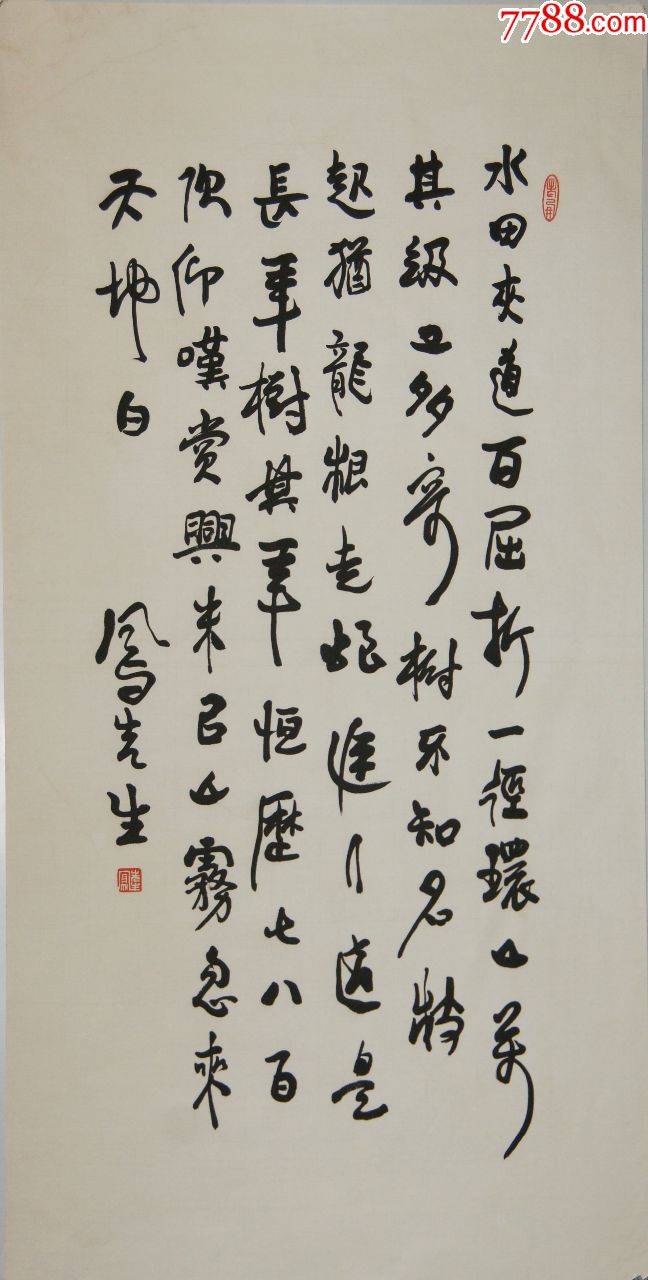 7788.com
水田夾道百屈折一徑環山萬
其級多奇樹不知名特
起猶龍根走蛇途適是
長年樹其年恒歷七八百
俯仰嘆賞興未已山霧忽來
天地白 鳳先生